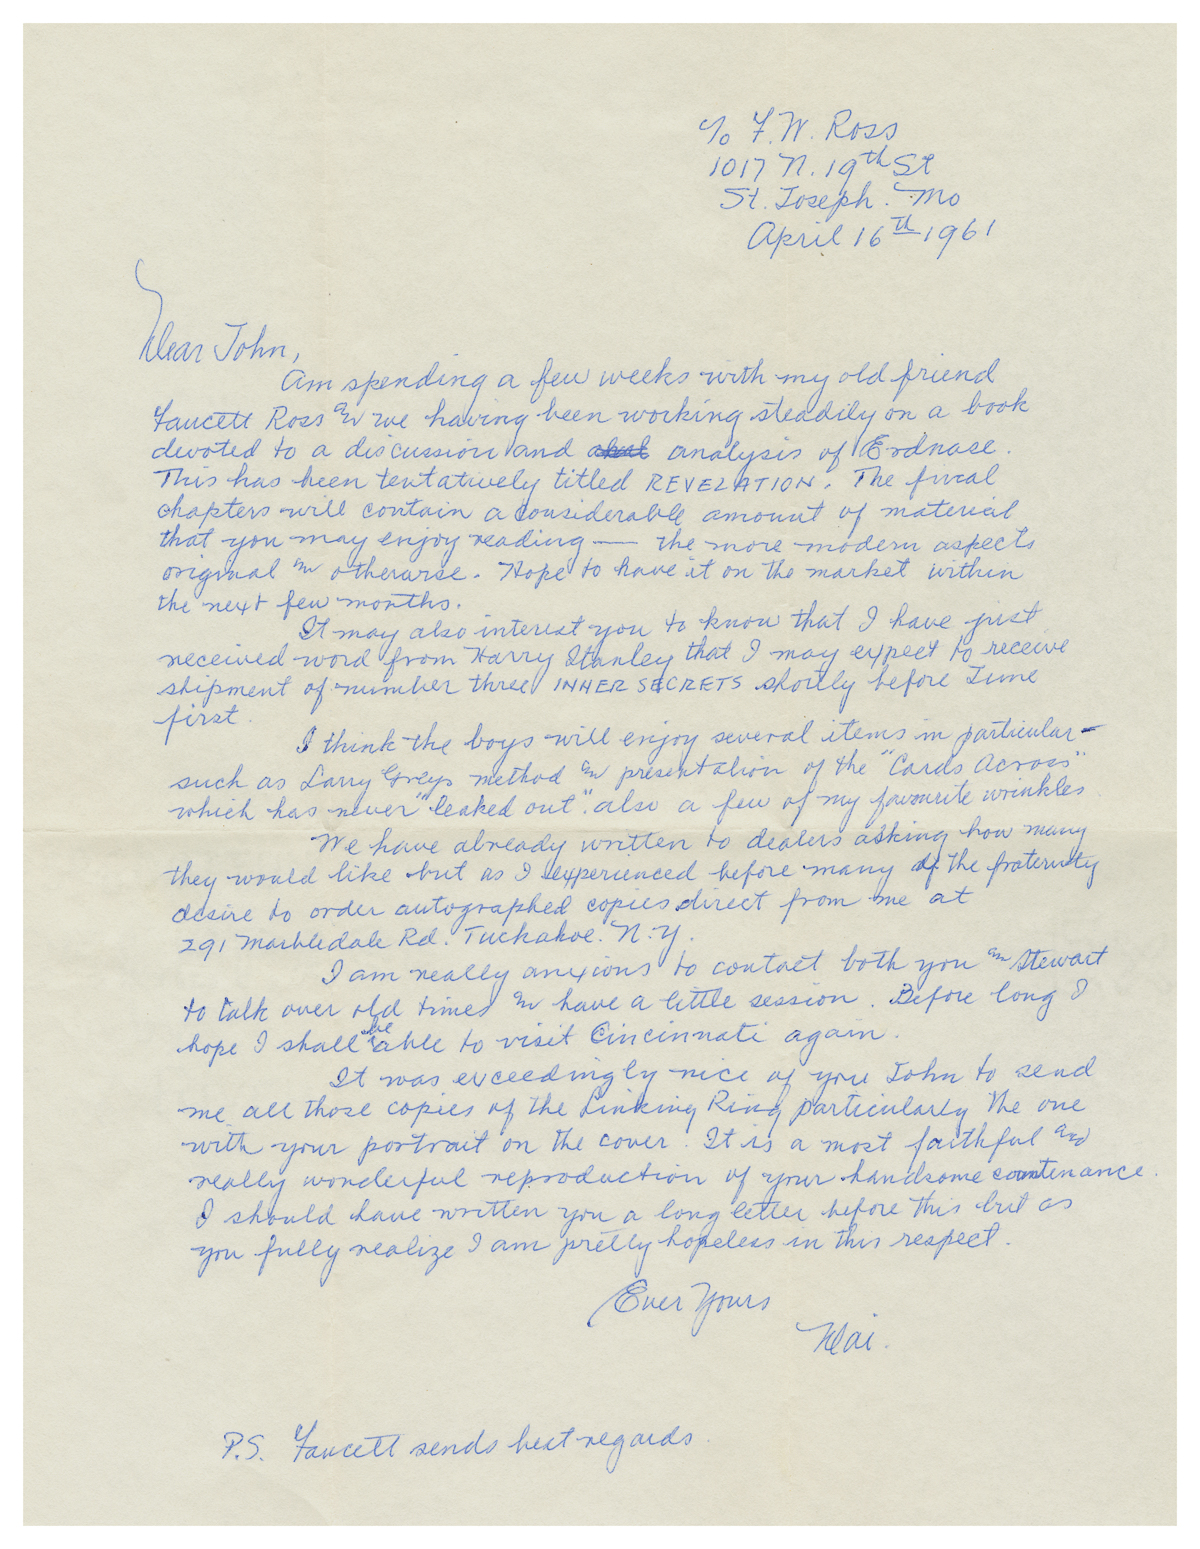 c/o F. W. Ross
1017 N. 19th St
St. Joseph. Mo
April 16th 1961
Dear John,
Am spending a few weeks with my old friend
Faucett Ross and we having been working steadily on a book
devoted to a discussion and analysis of Erdnase.
This has been tentatively titled REVELATION. The final
chapters will contain a considerable amount of material
that you may enjoy reading — the more modern aspects
original and otherwise. Hope to have it on the market within
the next few months.
It may also interest you to know that I have just
received word from Harry Stanley that I may expect to receive
shipment of number three INNER SECRETS shortly before June
first.
I think the boys will enjoy several items in particular -
such as Larry Greys method and presentation of the "Cards Across"
which has never "leaked out". also a few of my favourite wrinkles
We have already written to dealers asking how many
they would like but as I experienced before many of the fraternity
desire to order autographed copies direct from me at
291 Marbledale Rd. Tuckahoe. N.Y.
I am really anxious to contact both you and Stewart
to talk over old times and have a little session. Before long I
hope I shall be able to visit Cincinnati again.
It was exceedingly nice of you John to send
me all those copies of the Linking Ring particularly the one
with your portrait on the cover. It is a most faithful and
really wonderful reproduction of your handsome countenance.
I should have written you a long letter before this but as
you fully realize I am pretty hopeless in this respect.
Ever Yours
Dai.
P.S. Faucett sends best regards.